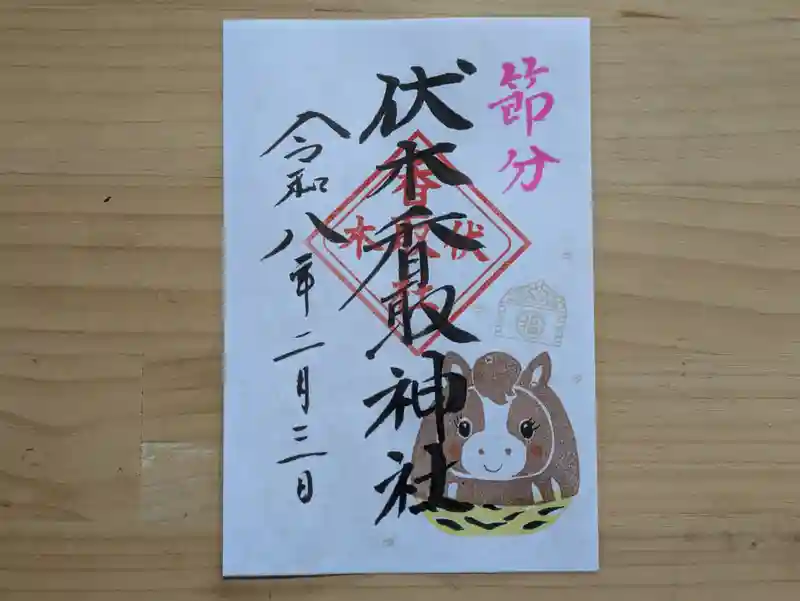 節分
伏木香取神社
令和八年二月三日
香
伏 木